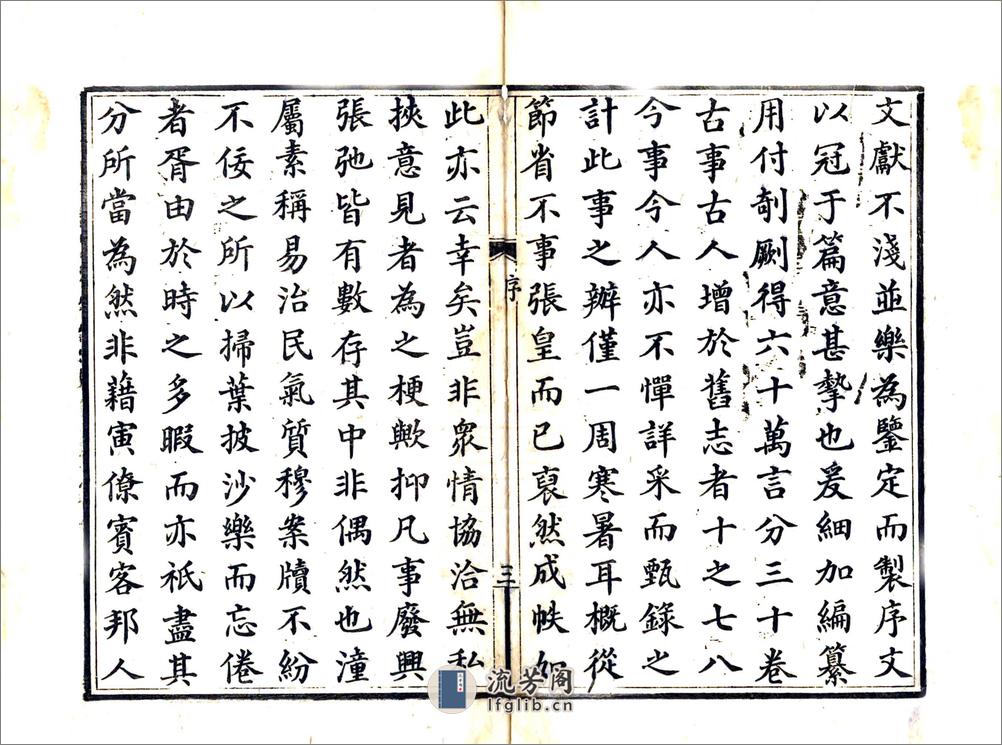 文獻不淺並樂為鑒定而製序文
以冠于篇意甚摯也爰細加編纂
用付剞劂得六十萬言分三十卷
古事古人增於舊志者十之七八
今事今人亦不憚詳采而甄錄之
計此事之辦僅一周寒暑耳概從
節省不事張皇而已裒然成帙如
序
三
此亦云幸矣豈非眾情協洽無私
挾意見者為之梗歟抑凡事廢興
張弛皆有數存其中非偶然也潼
屬素稱易治民氣質穆案牘不紛
不佞之所以掃葉披沙樂而忘倦
者胥由於時之多暇而亦祇盡其
分所當為然非藉寅僚賓客邦人
流芳阁
lfglib.cn